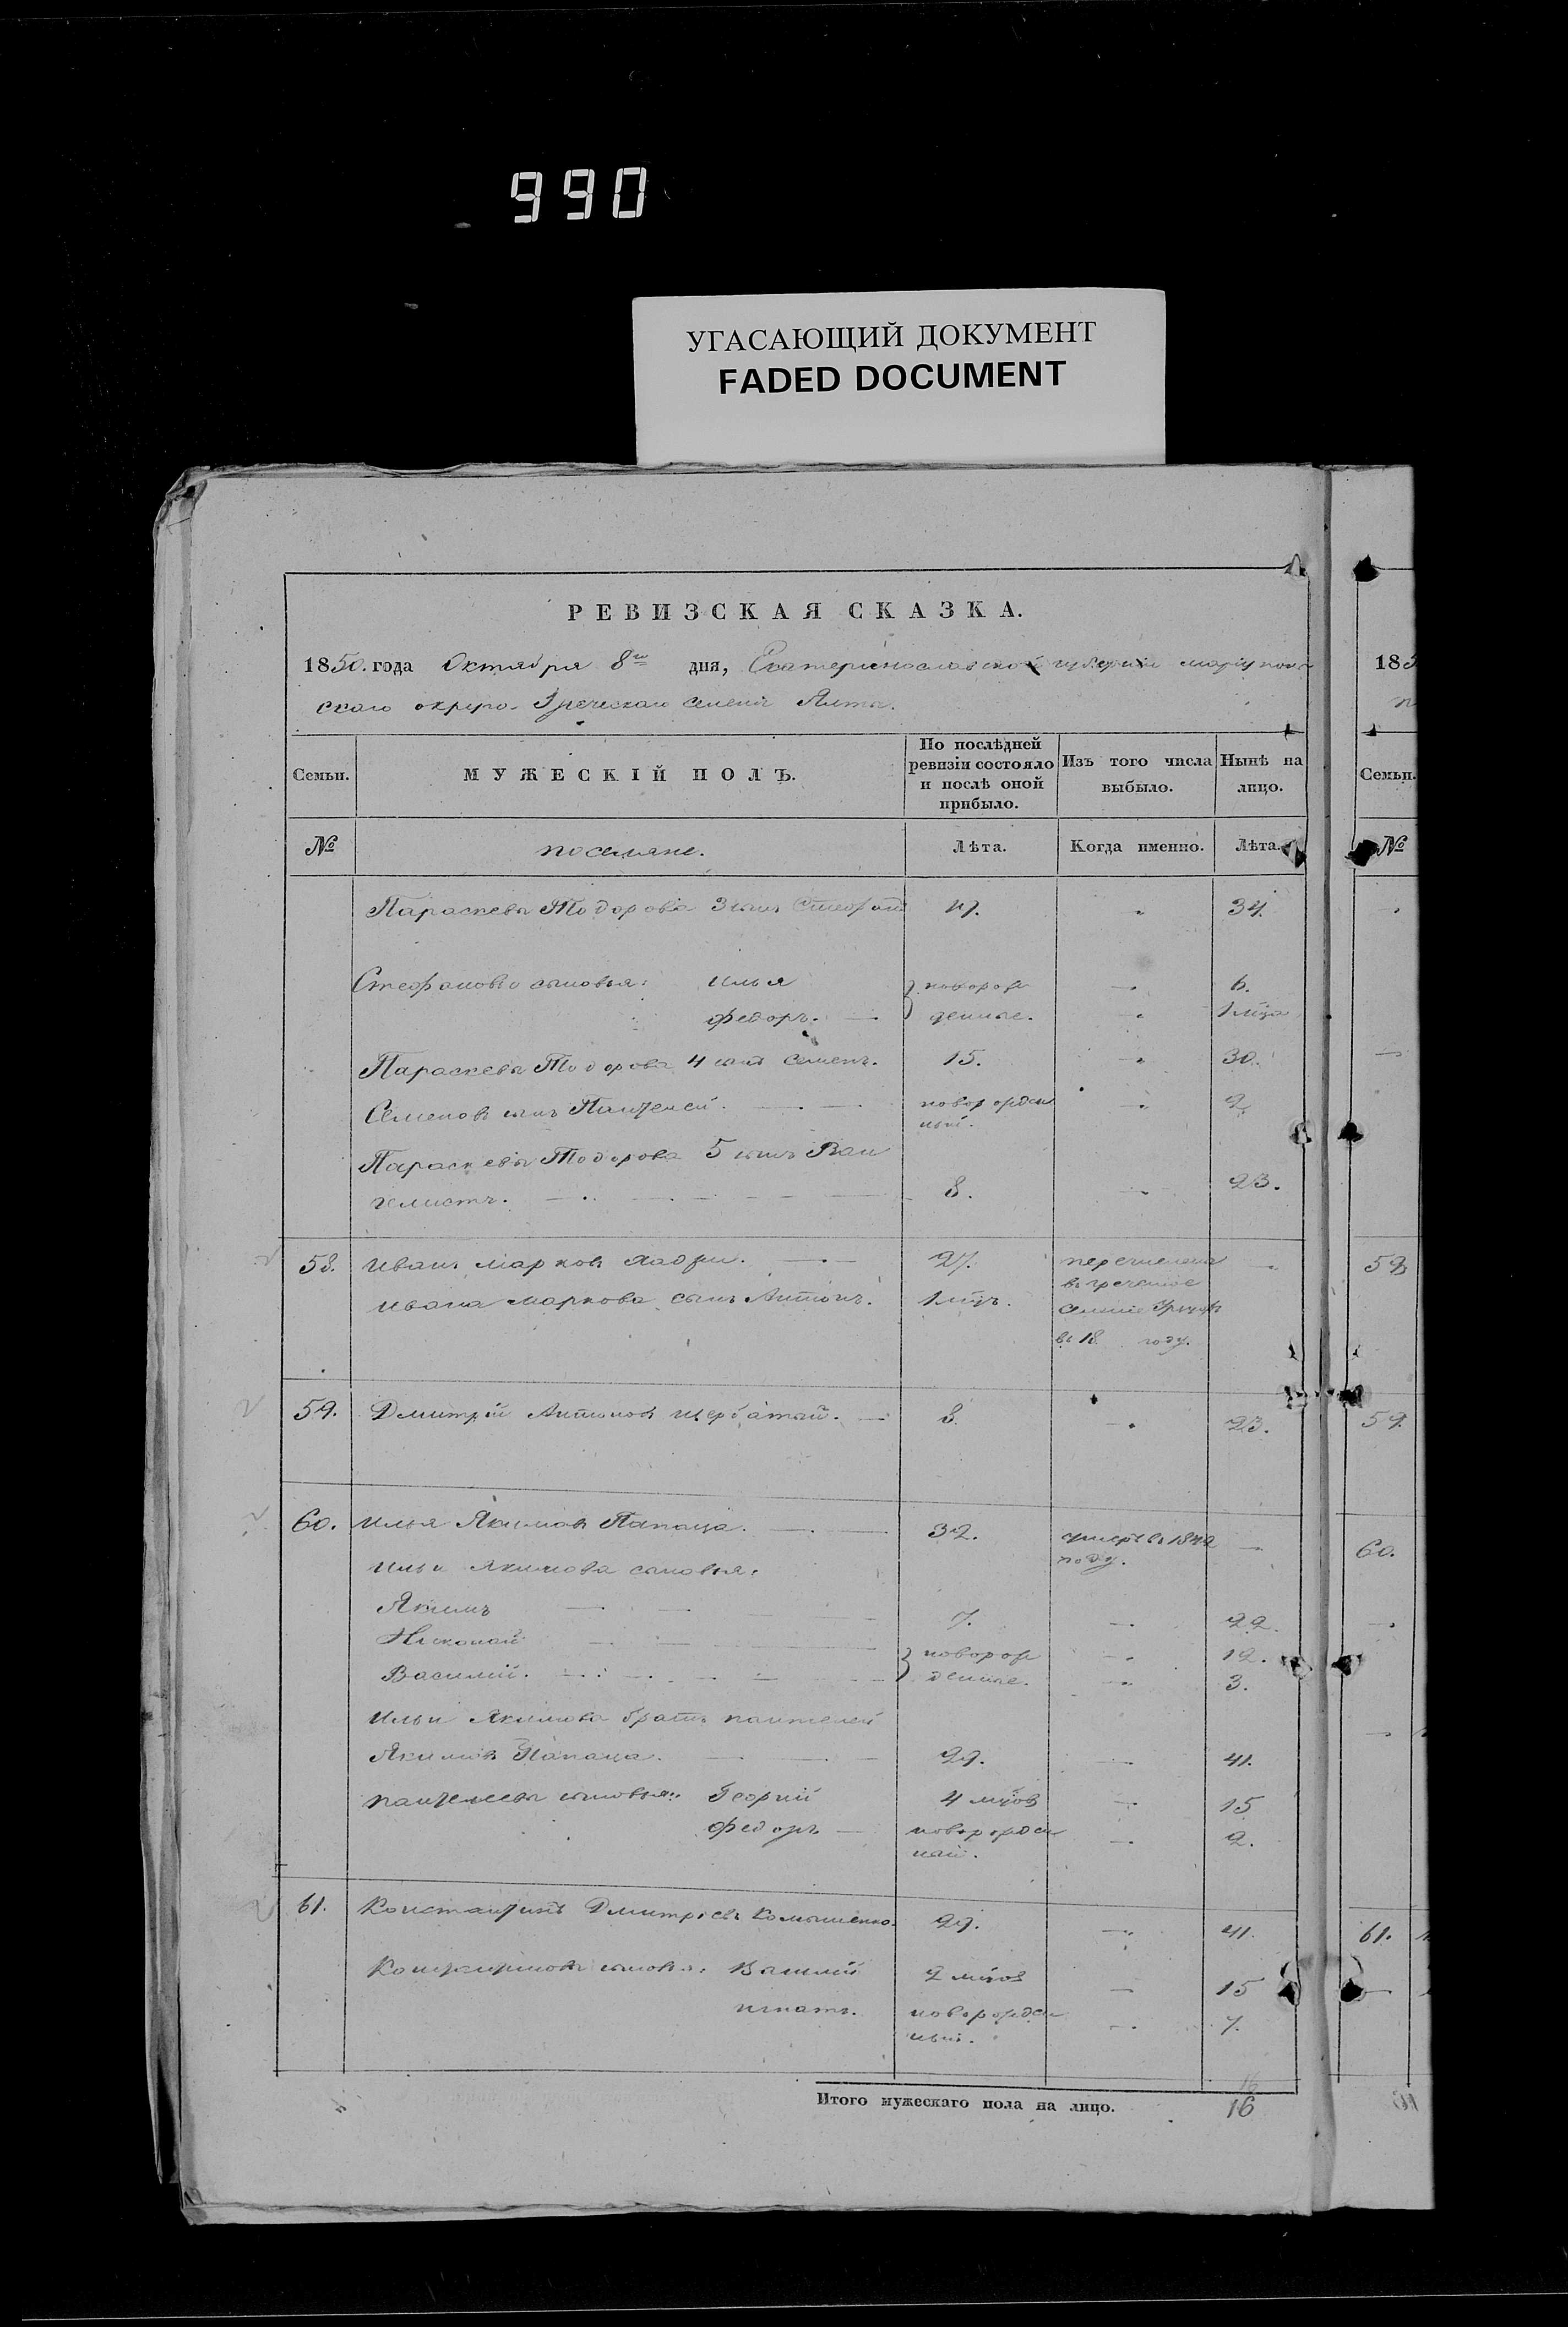 990
УГАСАЮЩИЙ ДОКУМЕНТ
FADED DOCUMENT
РЕВИЗСКАЯ СКАЗКА.
1850. года Октября 8го дня, Екатеринославской губернии мариупол
скаго округа Греческаго селения Ялта.
185
Семьи.
МУЖЕСКІЙ ПОЛЪ.
По послѣдней ревизіи состояло и послѣ оной прибыло.
Изъ того числа выбыло.
Нынѣ на лицо.
Семьи.
№ поселяне. Лѣта. Когда именно. Лѣта. №
Параскевы Тодорова 3 сынъ Стефан 34.
Стефановы сыновья: Илья новорож 6.
Федоръ. денные. 1 мца
Параскевы Тодорова 4 сынъ Семенъ. 15. 30.
Семеновъ сынъ Пантелей. новорожден 2
ный.
Параскевы Тодорова 5 сынъ Ван
гелистъ. 8. 23.
58. Иванъ Марковъ Хаджи. 27. перечислены 58
въ греческое
Ивана Маркова сынъ Антонъ. 1 мцъ. селение
въ 18 году.
59. Дмитрій Антоновъ Щербатай. 8. 23. 59.
60. Илья Якимовъ Папаца. 32. умеръ въ 1842 60.
году.
Ильи Якимова сыновья:
Якимъ 7. 22.
Николай новорож 12.
Василий. денные. 3.
Ильи Якимова братъ пантелей
Якимовъ Папаца. 29. 41.
пантелеевы сыновья: Георгий 4 мцов 15
Федоръ новорожден 2.
ный.
61. Константинъ Дмитріевъ 29. 41. 61.
Константиновы сыновья: Василий 2 мцов 15
Игнатъ. новорожден 7.
ный.
16
Итого мужескаго пола на лицо. 16